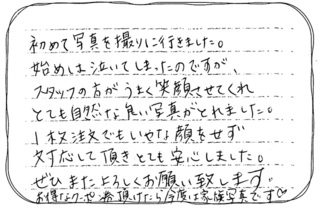 初めて写真を撮りに行きました。
始めしは泣いてしまったのですが、
スタッフの方がうまく笑顔させてくれ
とても自然な良い写真がとれました。
1枚注文でもいやな顔をせず
対応して頂きとても安心しました。
ぜひまたよろしくお願い致します。
お得なクーポン券頂けたら今度は家族写真です♡